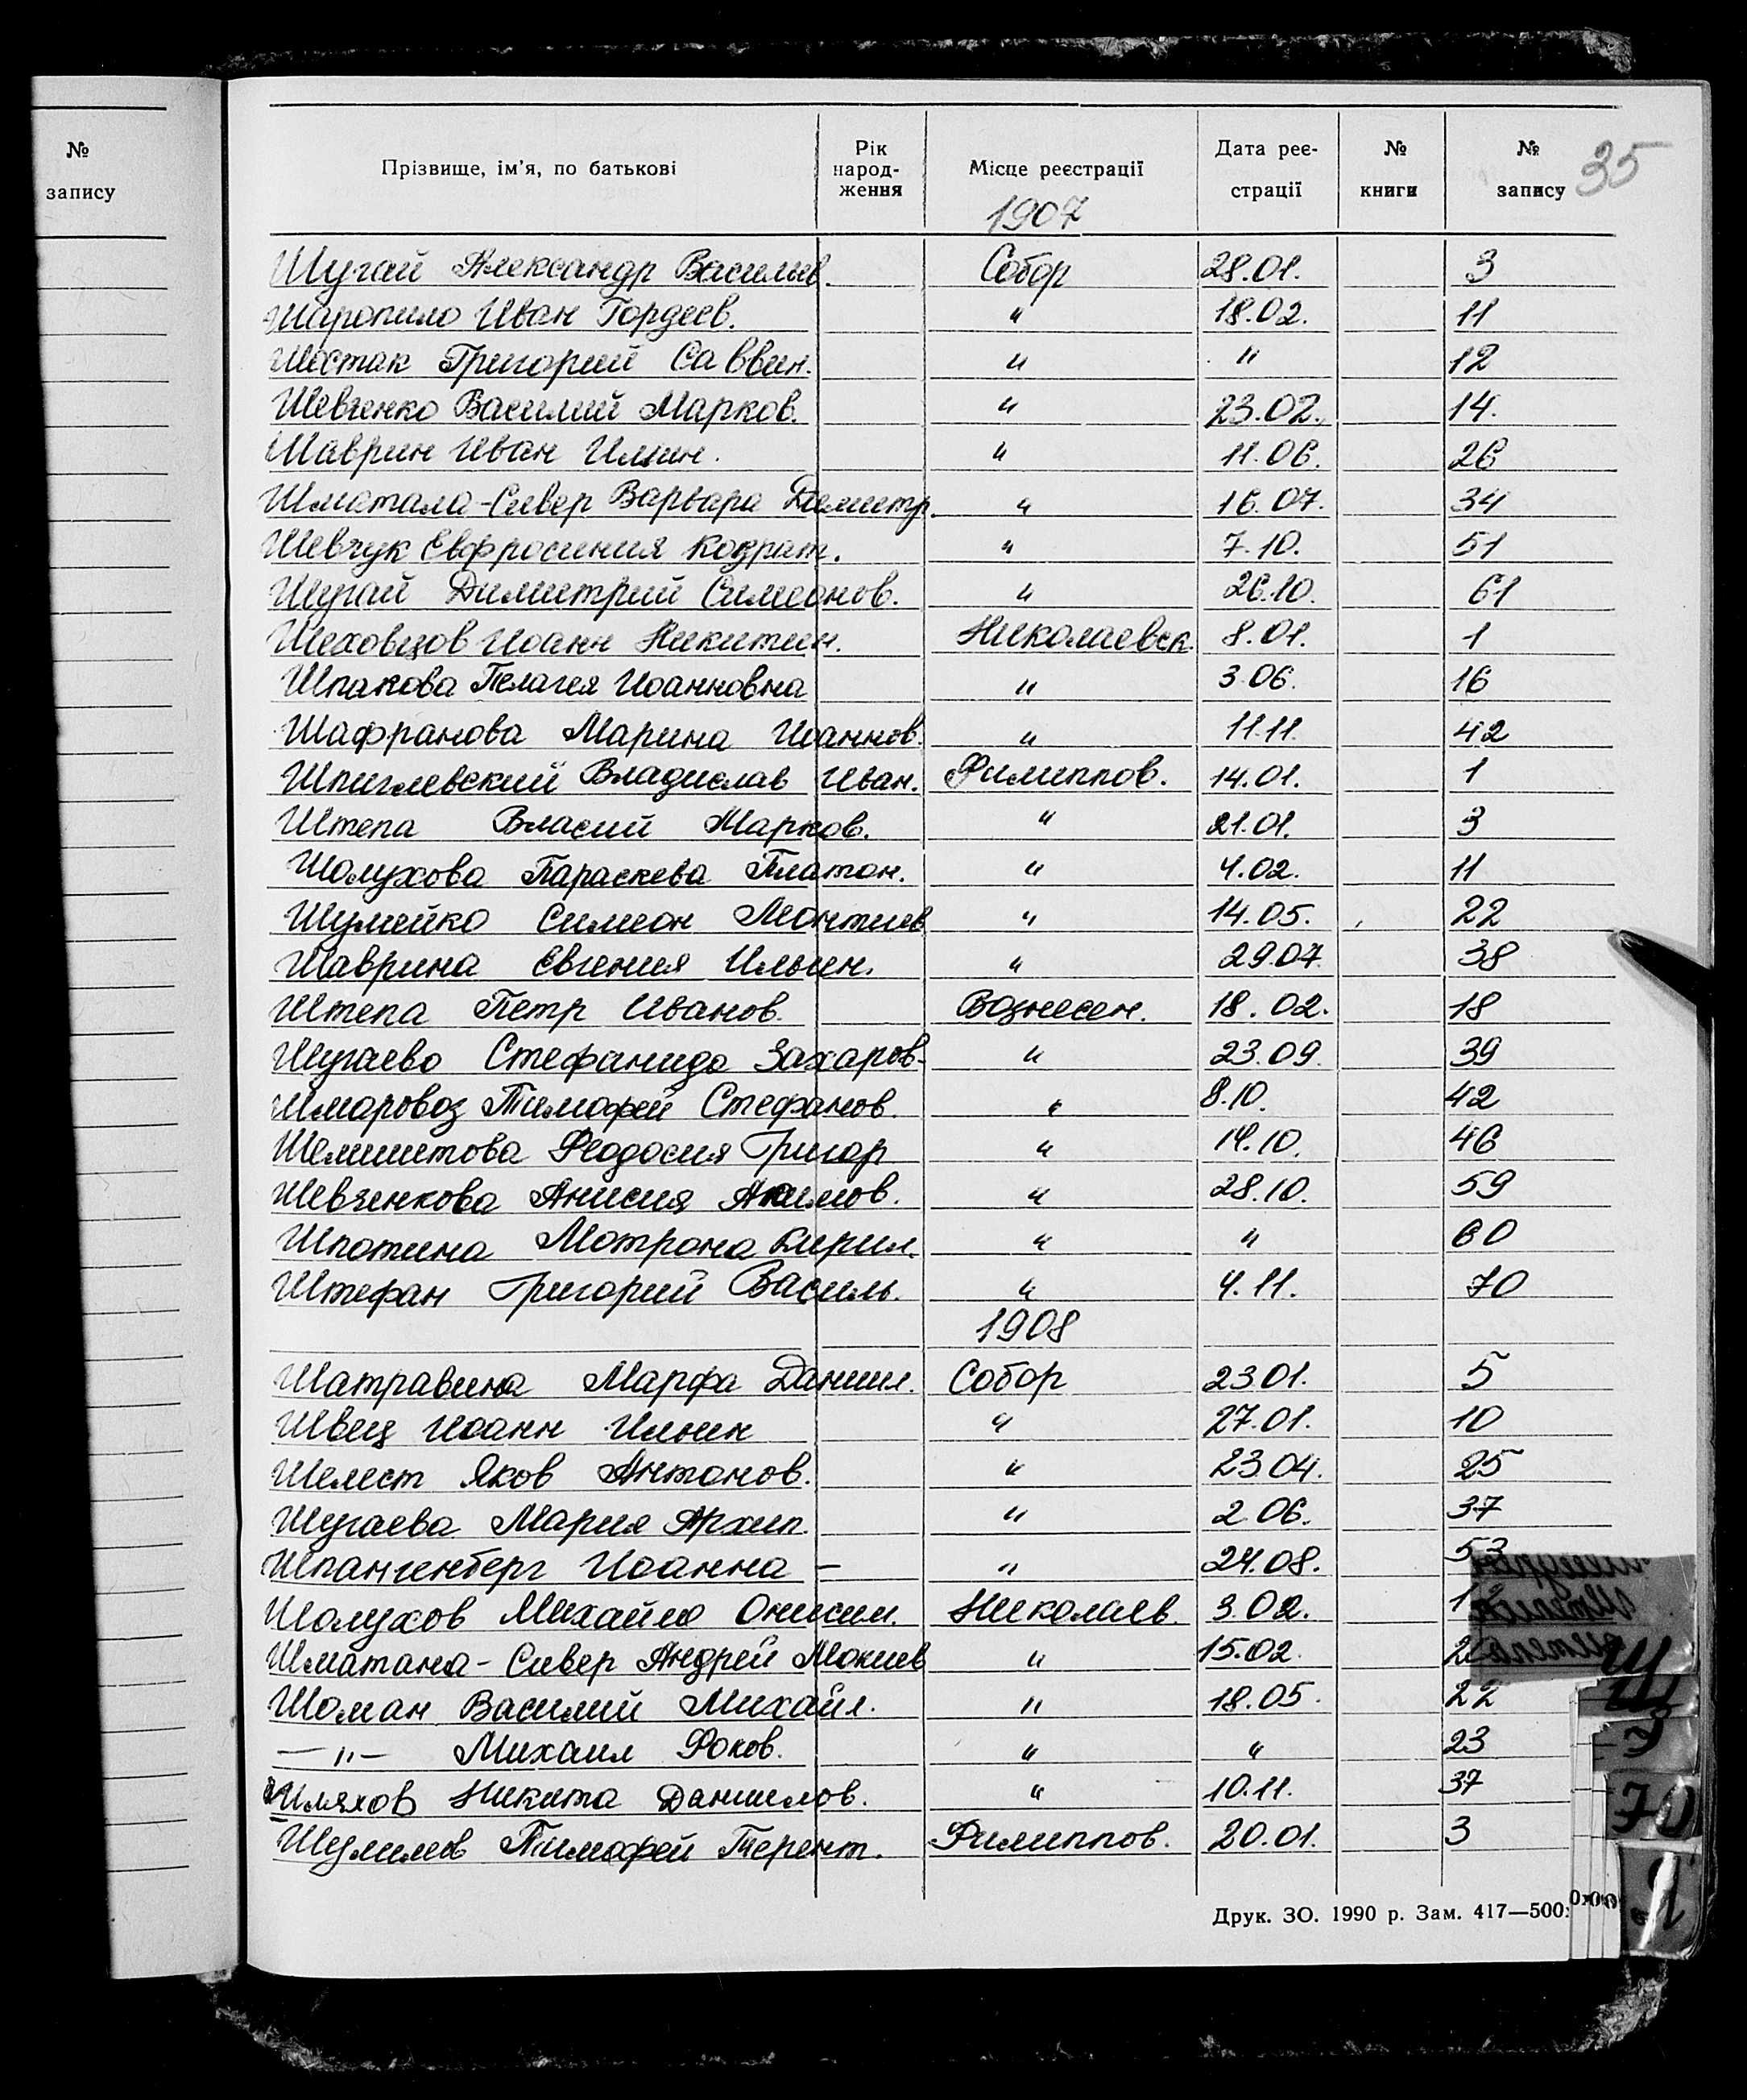 № запису
35
Прізвище, ім'я, по батькові Рік народження Місце реєстрації Дата реєстрації № книги № запису
1907
Шугай Александр Васильев. Собор 28.01. 3
Шаропило Иван Гордеев. " 18.02. 11
Шестак Григорий Саввин. " " 12
Шевченко Василий Марков. " 23.02. 14.
Шаврин Иван Ильин. " 11.06. 26
Шматала-Сивер Варвара Димитр. " 16.07. 34
Шевчук Евфросиния Кодрат. " 7.10. 51
Шугай Димитрий Симеонов. " 26.10. 61
Шеховцов Иоанн Никитин. Николаевск. 8.01. 1
Шпакова Пелагея Иоанновна " 3.06. 16
Шафранова Марина Иоаннов. " 11.11. 42
Шпиглевский Владислав Иван. Филиппов. 14.01. 1
Штепа Власий Марков. " 21.01. 3
Шолухова Параскева Платон. " 4.02. 11
Шумейко Симеон Леонтиев " 14.05. 22
Шаврина Евгения Ильин. " 29.07. 38
Штепа Петр Иванов. Вознесен. 18.02. 18
Шугаева Стефанида Захаров. " 23.09. 39
Шмаровоз Тимофей Стефанов. " 8.10. 42
Шелишетова Феодосия Григор " 14.10. 46
Шевченкова Анисия Акимов. " 28.10. 59
Шпотина Мотрона Кирил. " " 60
Штефан Григорий Василь. " 4.11. 70
1908
Шатравина Марфа Даниил. Собор 23.01. 5
Швец Иоанн Ильин " 27.01. 10
Шелест Яков Антонов. " 23.04. 25
Шугаева Мария Архип. " 2.06. 37
Шпангенберг Иоанна – " 24.08. 53
Шолухов Михайло Онисим. Николаев. 3.02. 12
Шматана-Сивер Андрей Мокиев " 15.02.
Шоман Василий Михайл. " 18.05. 22
—"— Михаил Фоков. " " 23
Шляхов Никита Даниилов. " 10.11. 37
Шумилов Тимофей Терент. Филиппов. 20.01. 3
Друк. ЗО. 1990 р. Зам. 417—500:
Щ
Ш
Э
Ю
Я